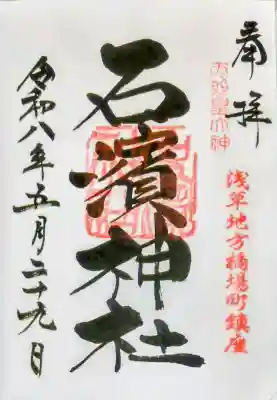 奉拝
天照皇大神
浅草地方橋場町鎮座
石濱神社
令和八年五月二十九日